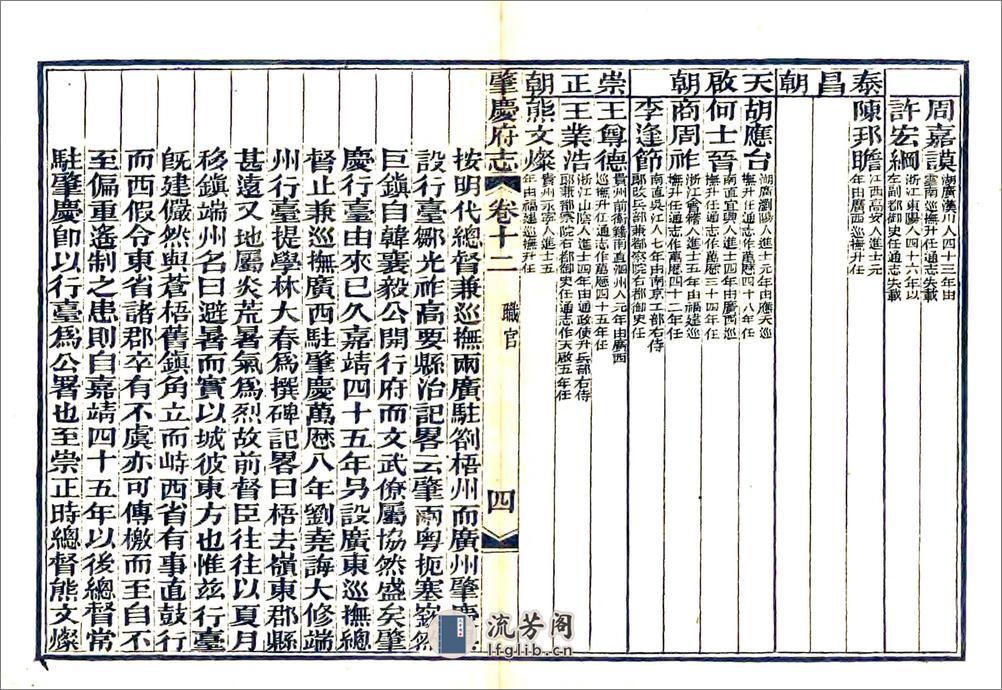 周嘉謨湖廣漢川人四十三年由雲南巡撫升任通志失載
許宏綱浙江東陽人四十六年以左副都御史任通志失載
泰昌朝
陳邦瞻江西高安人進士元年由廣西巡撫升任
天啟朝
胡應台湖廣瀏陽人進士元年由應天巡撫升任通志作萬曆四十八年任
何士晉南直宜興人進士四年由廣西巡撫升任通志作萬歴三十四年任
商周祚浙江會稽人進士五年由福建巡撫升任通志作萬歴四十二年任
李逢節南直吳江人七年由南京工部右侍郎改兵部兼都察院右都御史任
崇正朝
王尊德貴州前衛籍南直泗州人元年由廣西巡撫升任通志作萬歴四十五年任
王業浩浙江山陰人進士四年由通政升兵部右侍郎兼都察院右都御史任通志作天啟五年任
熊文燦貴州永寧人進士五年由福建巡撫升任
肇慶府志 卷十二 職官 四
按明代總督兼巡撫兩廣駐劄梧州而廣州肇慶
設行臺鄒光祚高要縣治記畧云肇兩粤扼塞
巨鎮自韓襄毅公開行府而文武僚屬協然盛矣肇
慶行臺由來已久嘉靖四十五年另設廣東巡撫總
督止兼巡撫廣西駐肇慶萬歴八年劉堯誨大修端
州行臺提學林大春為撰碑記畧曰梧去嶺東郡縣
甚遠又地屬炎荒暑氣為烈故前督臣往往以夏月
移鎮端州名曰避暑而實以城彼東方也惟茲行臺
旣建儼然與蒼梧舊鎮角立而峙西省有事直鼓行
而西假令東省諸郡卒有不虞亦可傳檄而至自不
至偏重遙制之患則自嘉靖四十五年以後總督常
駐肇慶即以行臺爲公署也至崇正時總督熊文燦
流芳阁
lfglib.cn